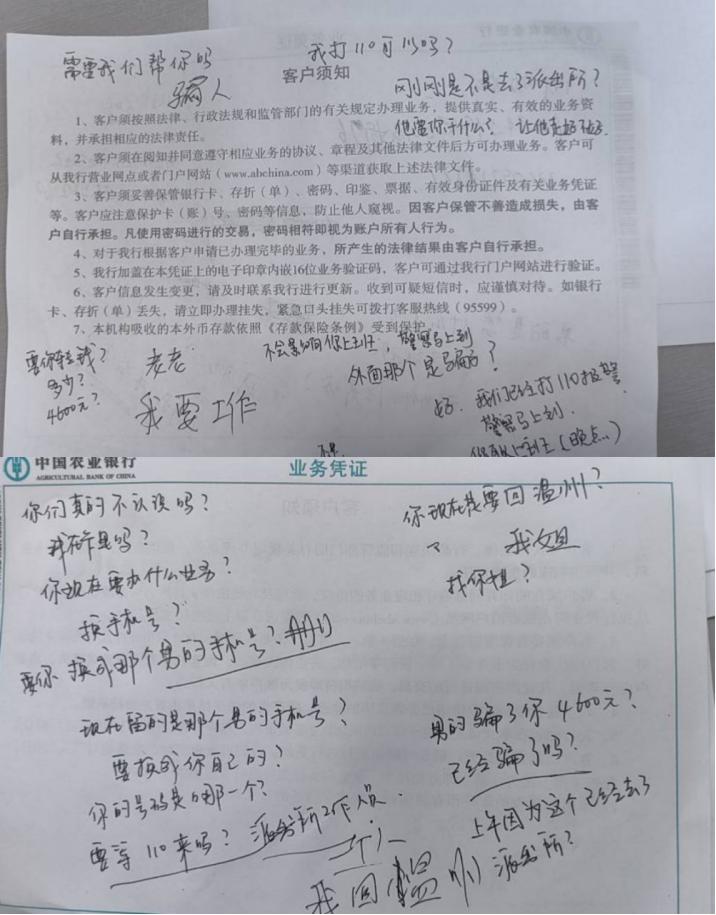 需要我们帮你吗
我打110可以吗？
骗人
客户须知
刚刚是不是去了派出所？
1、客户须按照法律、行政法规和监管部门的有关规定办理业务，提供真实、有效的业务资
料，并承担相应的法律责任。
他要你干什么？
2、客户须在阅知并同意遵守相应业务的协议、章程及其他法律文件后方可办理业务。客户可
从我行营业网点或者门户网站（www.abchina.com）等渠道获取上述法律文件。
3、客户须妥善保管银行卡、存折（单）、密码、印鉴、票据、有效身份证件及有关业务凭证
等。客户应注意保护卡（账）号、密码等信息，防止他人窥视。因客户保管不善造成损失，由客
户自行承担。凡使用密码进行的交易，密码相符即视为账户所有人行为。
4、对于我行根据客户申请已办理完毕的业务，所产生的法律结果由客户自行承担。
5、我行加盖在本凭证上的电子印章内嵌16位业务验证码，客户可通过我行门户网站进行验证。
6、客户信息发生变更，请及时联系我行进行更新。收到可疑短信时，应谨慎对待。如银行
卡、存折（单）丢失，请立即办理挂失，紧急口头挂失可拨打客户热线（95599）。
7、本机构吸收的本外币存款依照《存款保险条例》受到保护。
要你转钱？
多少？
4600元？
老老
我要工作
不会影响你上班，警察马上到
外面那个是骗子？
好．我们已经打110报警
警察马上到．
中国农业银行
AGRICULTURAL BANK OF CHINA
业务凭证
你们真的不认识吗？
你现在是要回温州？
你现在要办什么业务？
我姐
找你姐？
换手机号？
要你换成那个男的手机号？
现在留的是那个男的手机号？
要换成你自己的？
你的号码是哪一个？
要等110来吗？派出所工作人员．
男的骗了你4600元？
已经骗了吗？
上午因为这个已经去了
派出所？
我回温州